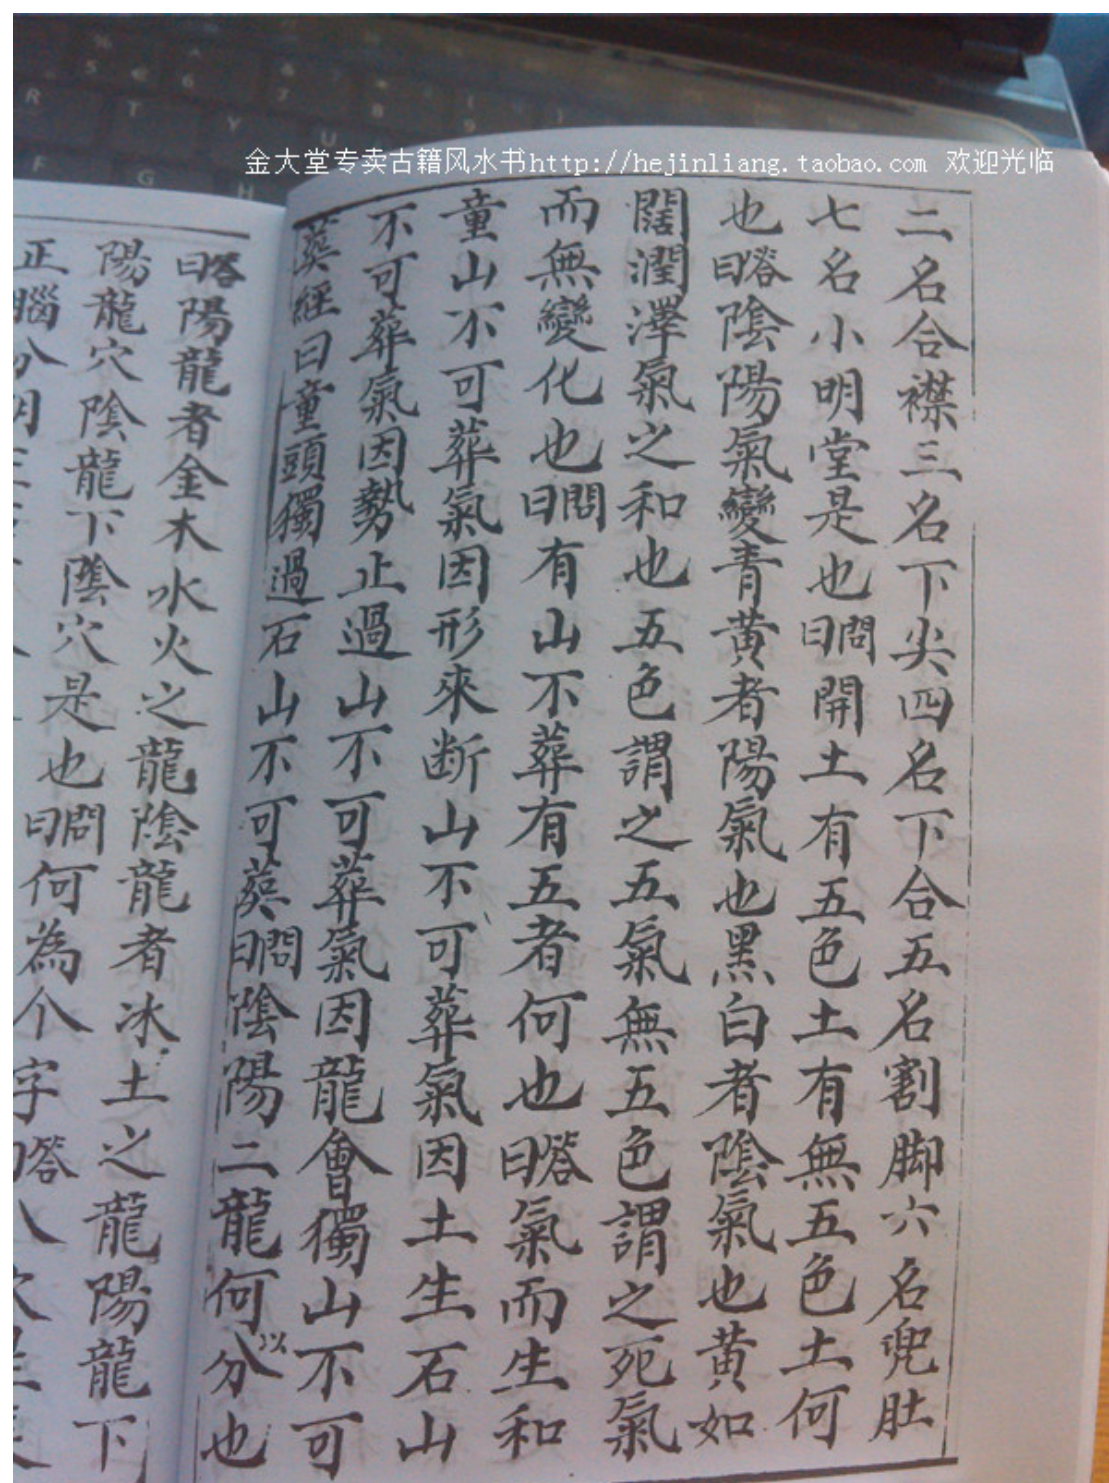 金大堂专卖古籍风水书http://hejinliang.taobao.com 欢迎光临
二名合襟三名下尖四名下合五名割脚六名兜肚
七名小明堂是也問曰開土有五色土有無五色土何
也答曰陰陽氣變青黃者陽氣也黑白者陰氣也黃如
闊潤澤氣之和也五色謂之五氣無五色謂之死氣
而無變化也問曰有山不葬有五者何也答曰氣而生和
童山不可葬氣因形來断山不可葬氣因土生石山
不可葬氣因勢止過山不可葬氣因龍會獨山不可
葬經曰童頭獨過石山不可葬問曰陰陽二龍何以分也
答曰陽龍者金木水火之龍陰龍者冰土之龍陽龍下
陽龍穴陰龍下陰穴是也問曰何為个字